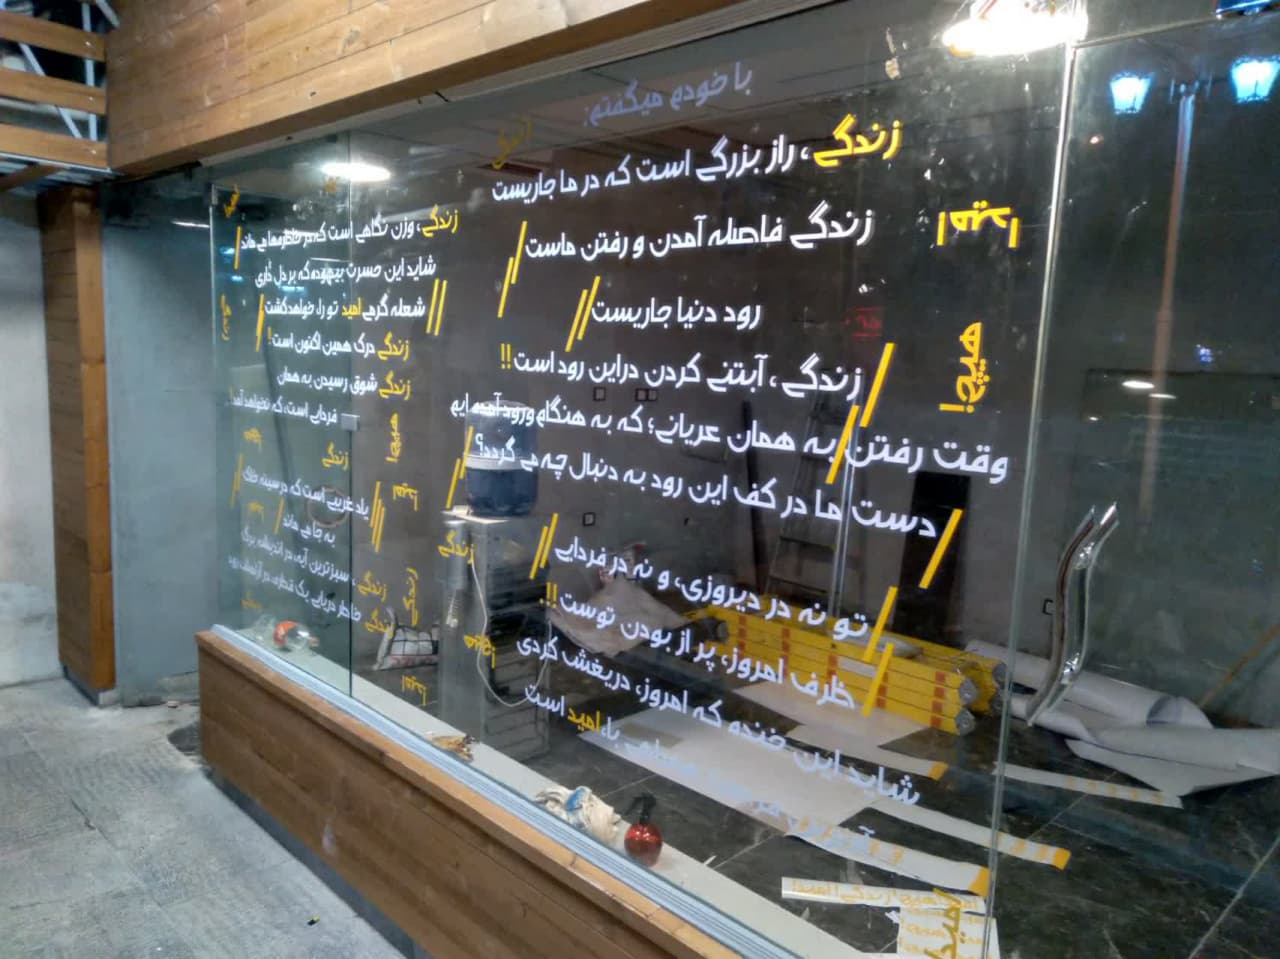 با خودم میگفتم:
زندگے، راز بزرگے است که در ما جاریست
زندگے فاصله آمدن و رفتن ماست
رود دنیا جاریست
زندگے، آبتنے کردن دراین رود است!!
وقت رفتن به همان عریانے؛ که به هنگام ورود آمده ایم
دست ما در کف این رود به دنبال چه مے گردد؟
تو نه در دیروزی، و نه در فردایے
ظرف امروز، پر از بودن توست!!
شاید این خنده که امروز، دریغش کردی
با، امید است
زندگے، وزن نگاهے است که در خاطره‌ها مے ماند
شاید این حسرت بیهوده که بر دل داری
شعله گرمے امید تو را، خواهد کشت
زندگے درک همین اکنون است!
زندگے شوق رسیدن به همان
فردایے است، که نخواهد آمد!
زندگے
یاد غریبے است که در سینه خاک
به جا مے ماند
زندگے، سبزترین آیه، در اندیشه برگ
زندگے خاطر دریایے یک قطره، در آرامش رود
هیچ!
هیچ!
زندگے
زندگے
امید!